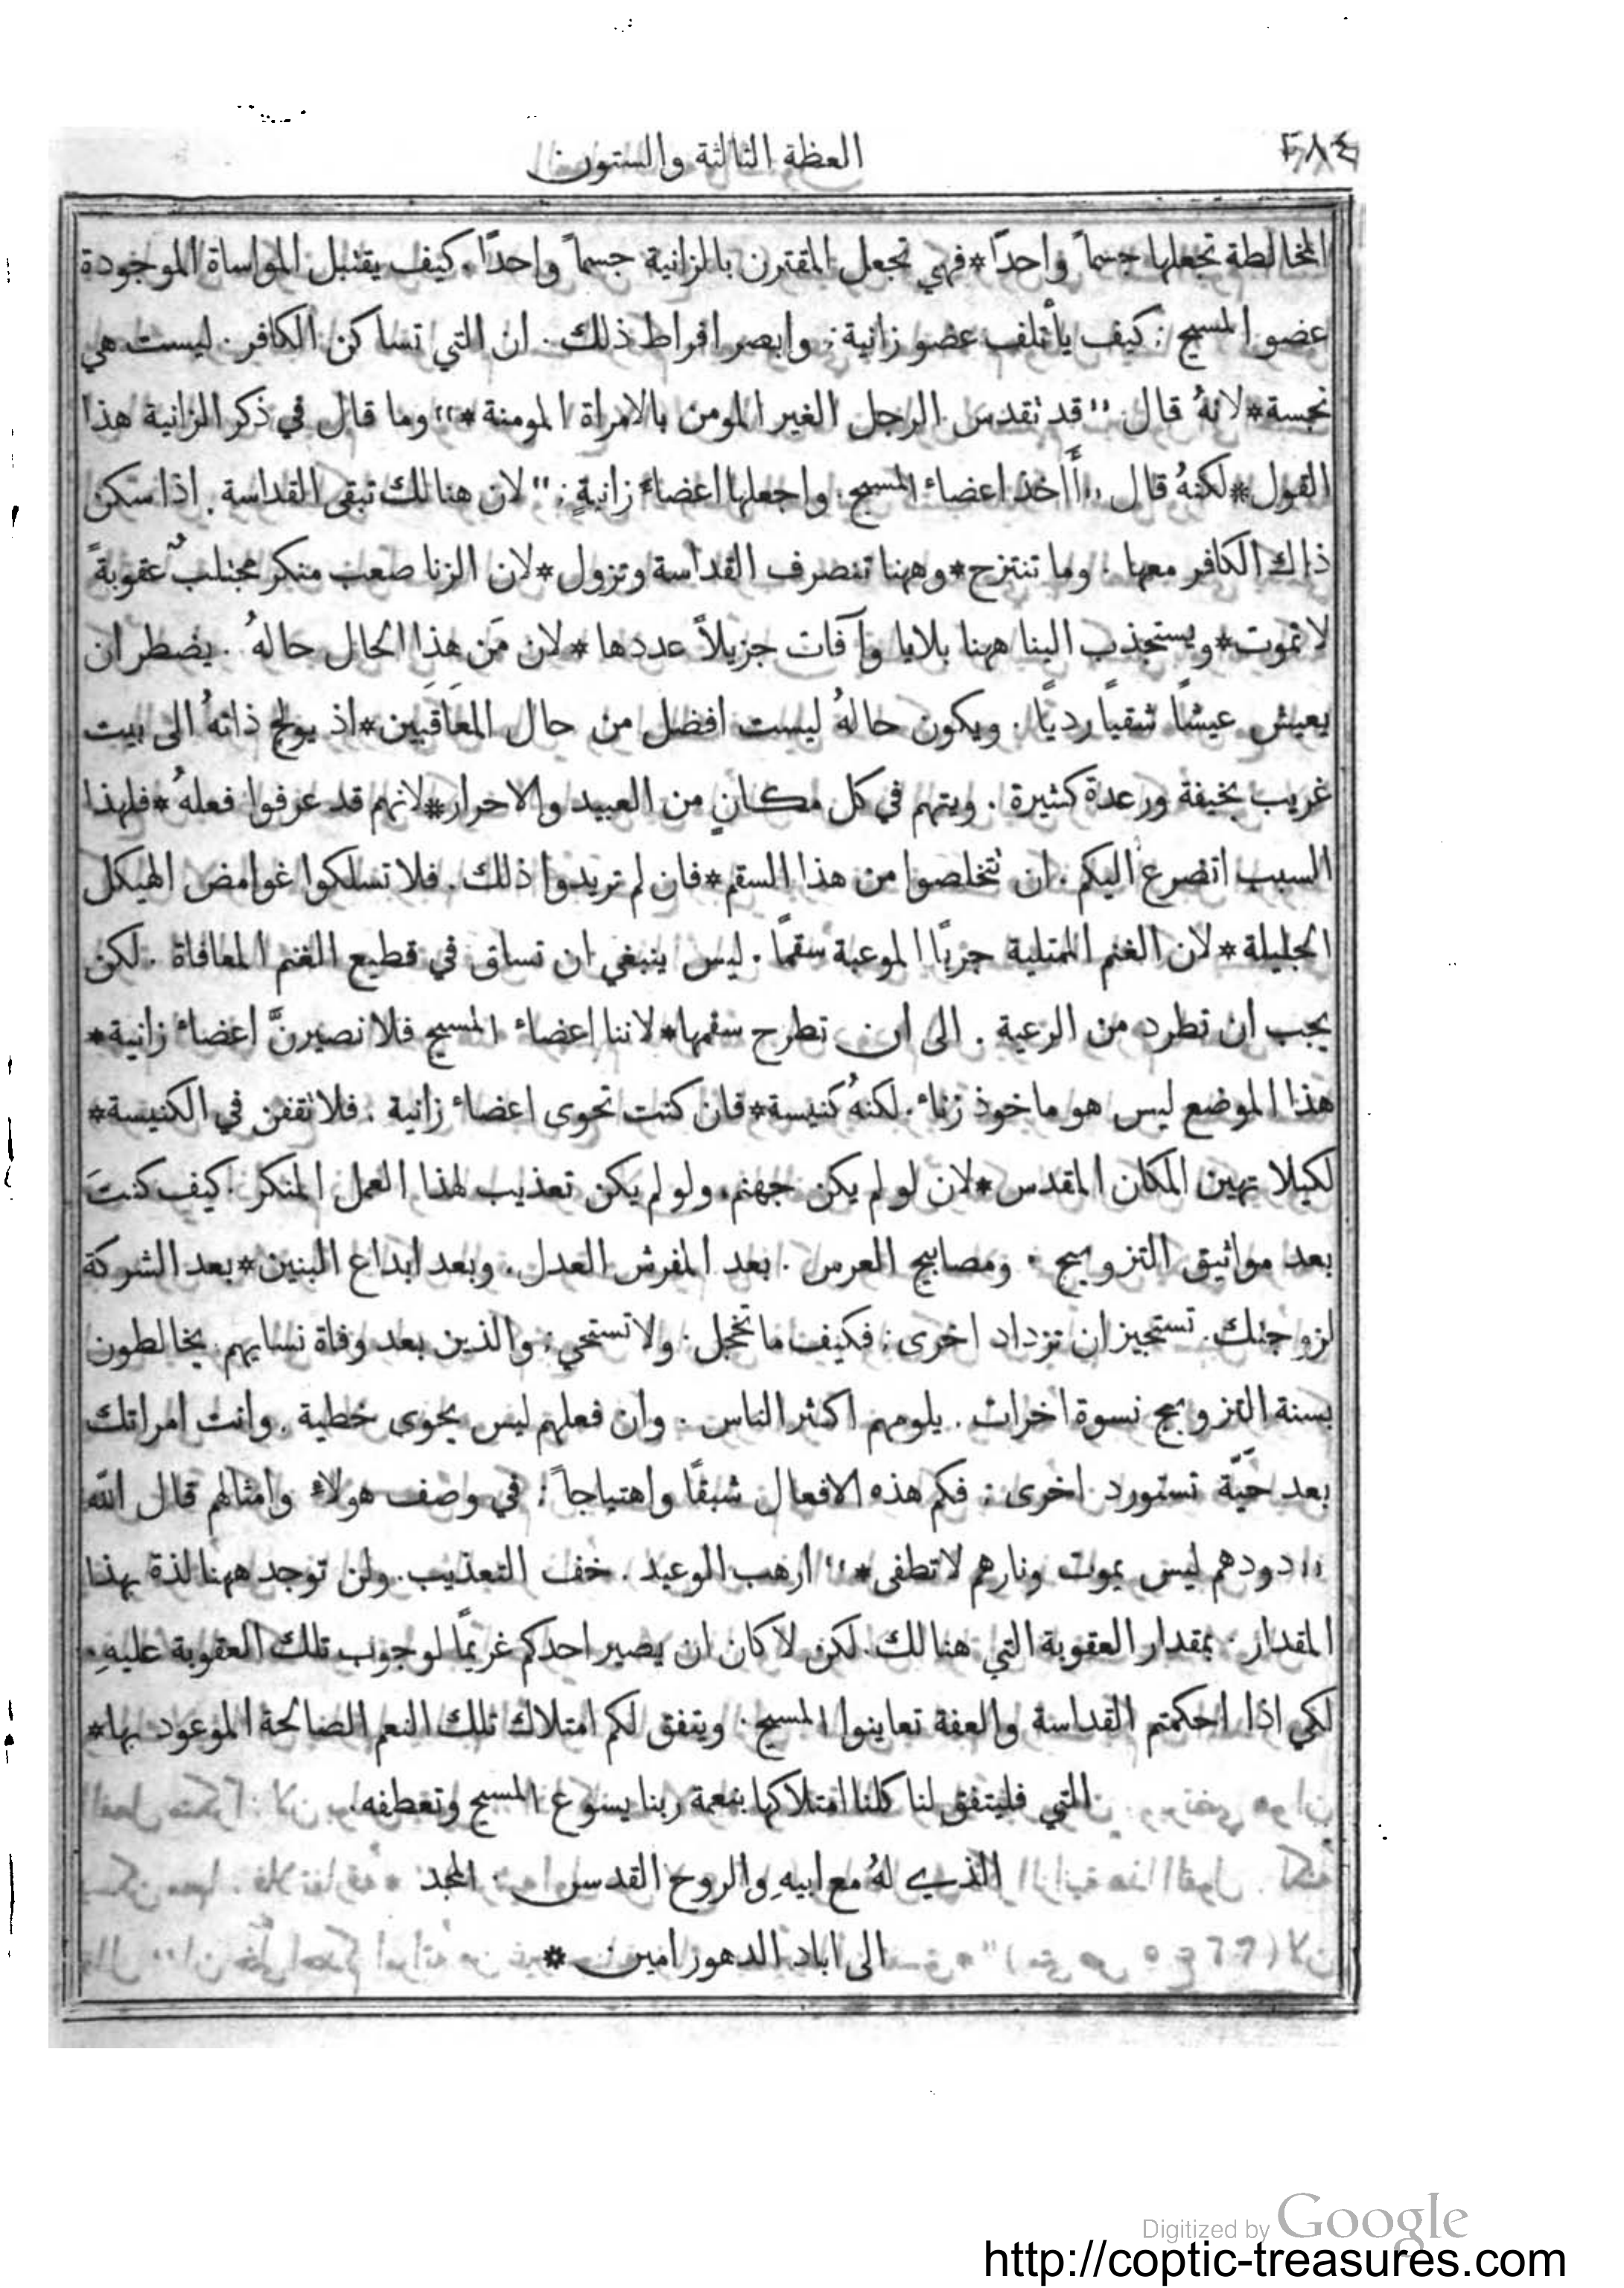 ٣٨٤
العظة الثالثة والستون
المخالطة تجعلها جسماً واحدًا * فهي تجعل المقترن بالزانية جسماً واحدًا . كيف يقتبل المواساة الموجودة
عضو المسيح : كيف يأتلف عضو زانية : وابصر افراط ذلك . ان التي تساكن الكافر . ليست هي
نجسة * لانهُ قال ,, قد تقدس الرجل الغير المومن بالامراة المومنة * ،، وما قال في ذكر الزانية هذا
القول * لكنهُ قال ,, أَاخذ اعضاء المسيح . واجعلها اعضاء زانيةٍ : ،، لان هنالك تبقى القداسة . اذا سكن
ذاك الكافر معها . وما تنتزح * وههنا تنصرف القداسة وتزول * لان الزنا صعب منكر مجتلبٌ عقوبةً
لا تموت * ويستجذب الينا ههنا بلايا وآفات جزيلاً عددها * لان مَن هذا الحال حالهُ . يضطر ان
يعيش عيشًا شقيًا رديًا . ويكون حالهُ ليست افضل من حال المعاقَبين * اذ يولج ذاتهُ الى بيت
غريب بخيفة ورعدة كثيرة . ويتهم في كل مكانٍ من العبيد والاحرار * لانهم قد عرفوا فعلهُ * فلهذا
السبب اتضرع اليكم . ان تتخلصوا من هذا السقم * فان لم تريدوا ذلك . فلا تسلكوا غوامض الهيكل
الجليلة * لان الغنم الممتلية جربًا الموعبة سقمًا . ليس ينبغي ان تساق في قطيع الغنم المعافاة . لكن
يجب ان تطرد من الرعية . الى ان تطرح سقمها * لاننا اعضاء المسيح فلا نصيرنَّ اعضاء زانية *
هذا الموضع ليس هو ماخوذ زناء . لكنهُ كنيسة * فان كنت تحوى اعضاء زانية . فلا تقفن في الكنيسة *
لكيلا تهين المكان المقدس * لان لو لم يكن جهنم . ولو لم يكن تعذيب لهذا العمل المنكر . كيف كنتَ
بعد مواثيق التزويج . ومصابيح العرس . بعد المفرش العدل . وبعد ابداع البنين * بعد الشركة
لزوجتك . تستجيز ان تزداد اخرى : فكيف ما تخجل . ولا تستحي : والذين بعد وفاة نسايهم يخالطون
بسنة التزويج نسوة اخرات . يلومهم اكثر الناس . وان فعلهم ليس يحوى خطية . وانت امراتك
بعد حيّة تستورد اخرى : فكم هذه الافعال شبقًا واهتياجاً : في وصف هولاء وامثالهم قال الله
,, دودهم ليس يموت ونارهم لا تطفى * ،، ارهب الوعيد . خف التعذيب . ولن توجد ههنا لذة بهذا
المقدار . بمقدار العقوبة التي هنالك . لكن لا كان ان يصير احدكم غريمًا لوجوب تلك العقوبة عليهِ .
لكي اذا احكمتم القداسة والعفة تعاينوا المسيح . ويتفق لكم امتلاك تلك النعم الصالحة الموعود بها *
التي فليتفق لنا كلنا امتلاكها بنعمة ربنا يسوع المسيح وتعطفه .
الذي لهُ مع ابيهِ والروح القدس . المجد
الى اباد الدهور امين *
Digitized by Google
http://coptic-treasures.com